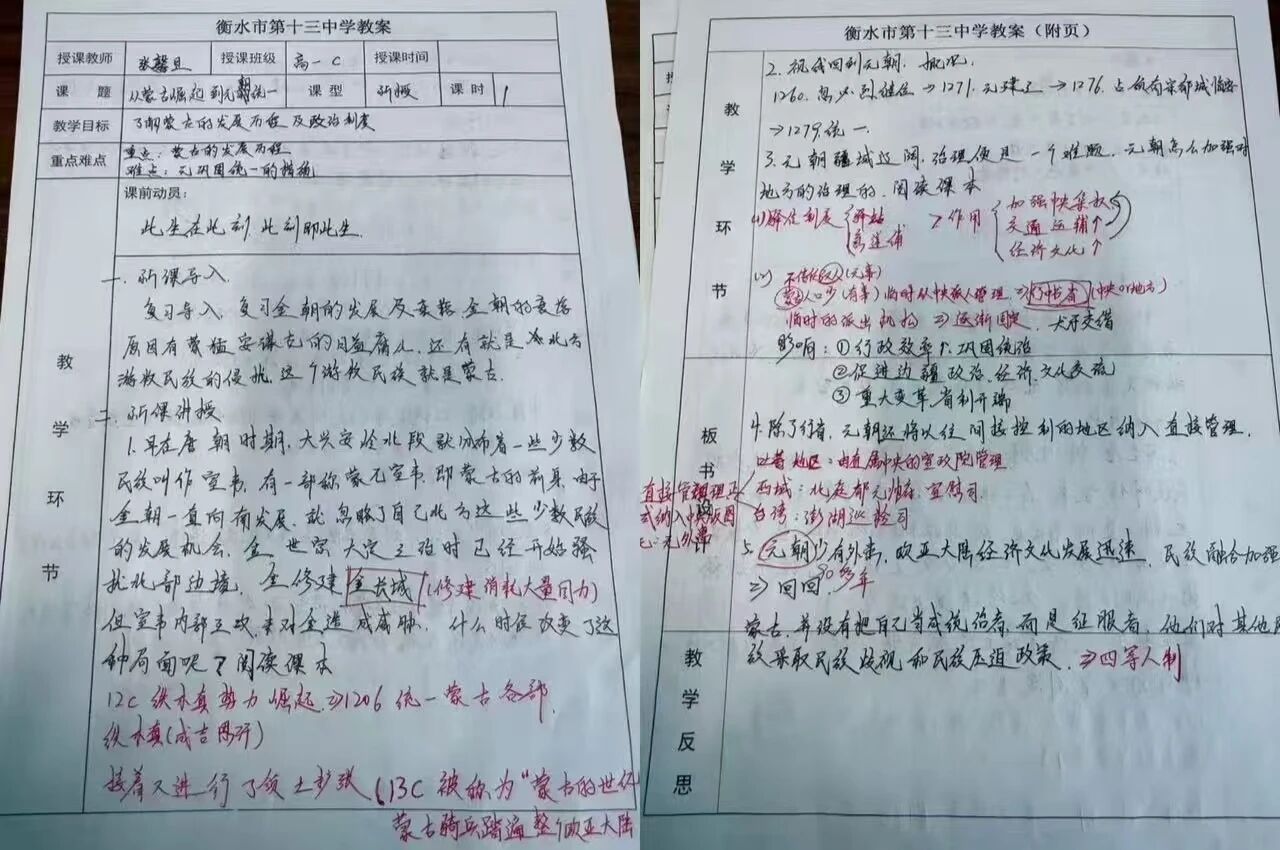 衡水市第十三中学教案
授课教师 张馨旦 授课班级 高一C 授课时间
课题 从蒙古崛起到元朝统一 课型 新授 课时 1
教学目标 了解蒙古的发展历程及政治制度
重点难点 重点：蒙古的发展历程
难点：元巩固统一的措施
课前动员：
此生在此刻，此刻即此生.
教学环节
一. 新课导入.
复习导入，复习金朝的发展及衰落，金朝的衰落
原因有猛安谋克的日益腐化，还有就是北方
游牧民族的侵扰，这个游牧民族就是蒙古.
二. 新课讲授.
1.早在唐朝时期，大兴安岭北段就分布着一些少数
民族叫作室韦，有一部称蒙兀室韦，即蒙古的前身，由于
金朝一直向南发展，就忽略了自己北方这些少数民族
的发展机会，金世宗大定之治时已经开始骚
扰北部边境，金修建金长城(修建消耗大量国力)
但室韦内部互攻，未对金造成威胁. 什么时候改变了这
种局面呢？阅读课本
12C 铁木真势力崛起⇒1206统一蒙古各部.
铁木真(成吉思汗)
接着又进行了领土扩张(13C 被称为“蒙古的世纪
蒙古骑兵踏遍整个欧亚大陆
衡水市第十三中学教案（附页）
教学环节
2.视线回到元朝. 概况.
1260，忽必烈继位→1271，元建立→1276，占领南宋都城临安
→1279，统一.
3.元朝疆域辽阔，治理便是一个难题，元朝怎么加强对
地方的治理的，阅读课本
(1)驿站制度 驿站 急递铺 作用 加强中央集权 交通运输↑ 经济文化↑
(2) 不信任汉人(元率)
蒙古人口少(有率)临时从中央派人管理⇒行中书省(中央or地方)
临时的派出机构⇒逐渐固定. 犬牙交错
影响：①行政效率↑，巩固统治
②促进边疆政治、经济、文化交流
③重大变革，省制开端
板书设计
4.除了行省，元朝还将以往间接控制的地区纳入直接管理.
吐蕃地区：由直属中央的宣政院管理
西域：北庭都元帅府、宣慰司
台湾：澎湖巡检司
直接管辖理正
式纳入中央版图
5.元朝少有外患，欧亚大陆经济文化发展迅速，民族融合加强
⇒回回 90多年
教学反思
蒙古，并没有把自己当成统治者，而是征服者，他们对其他民
族采取民族歧视和民族压迫政策.⇒四等人制